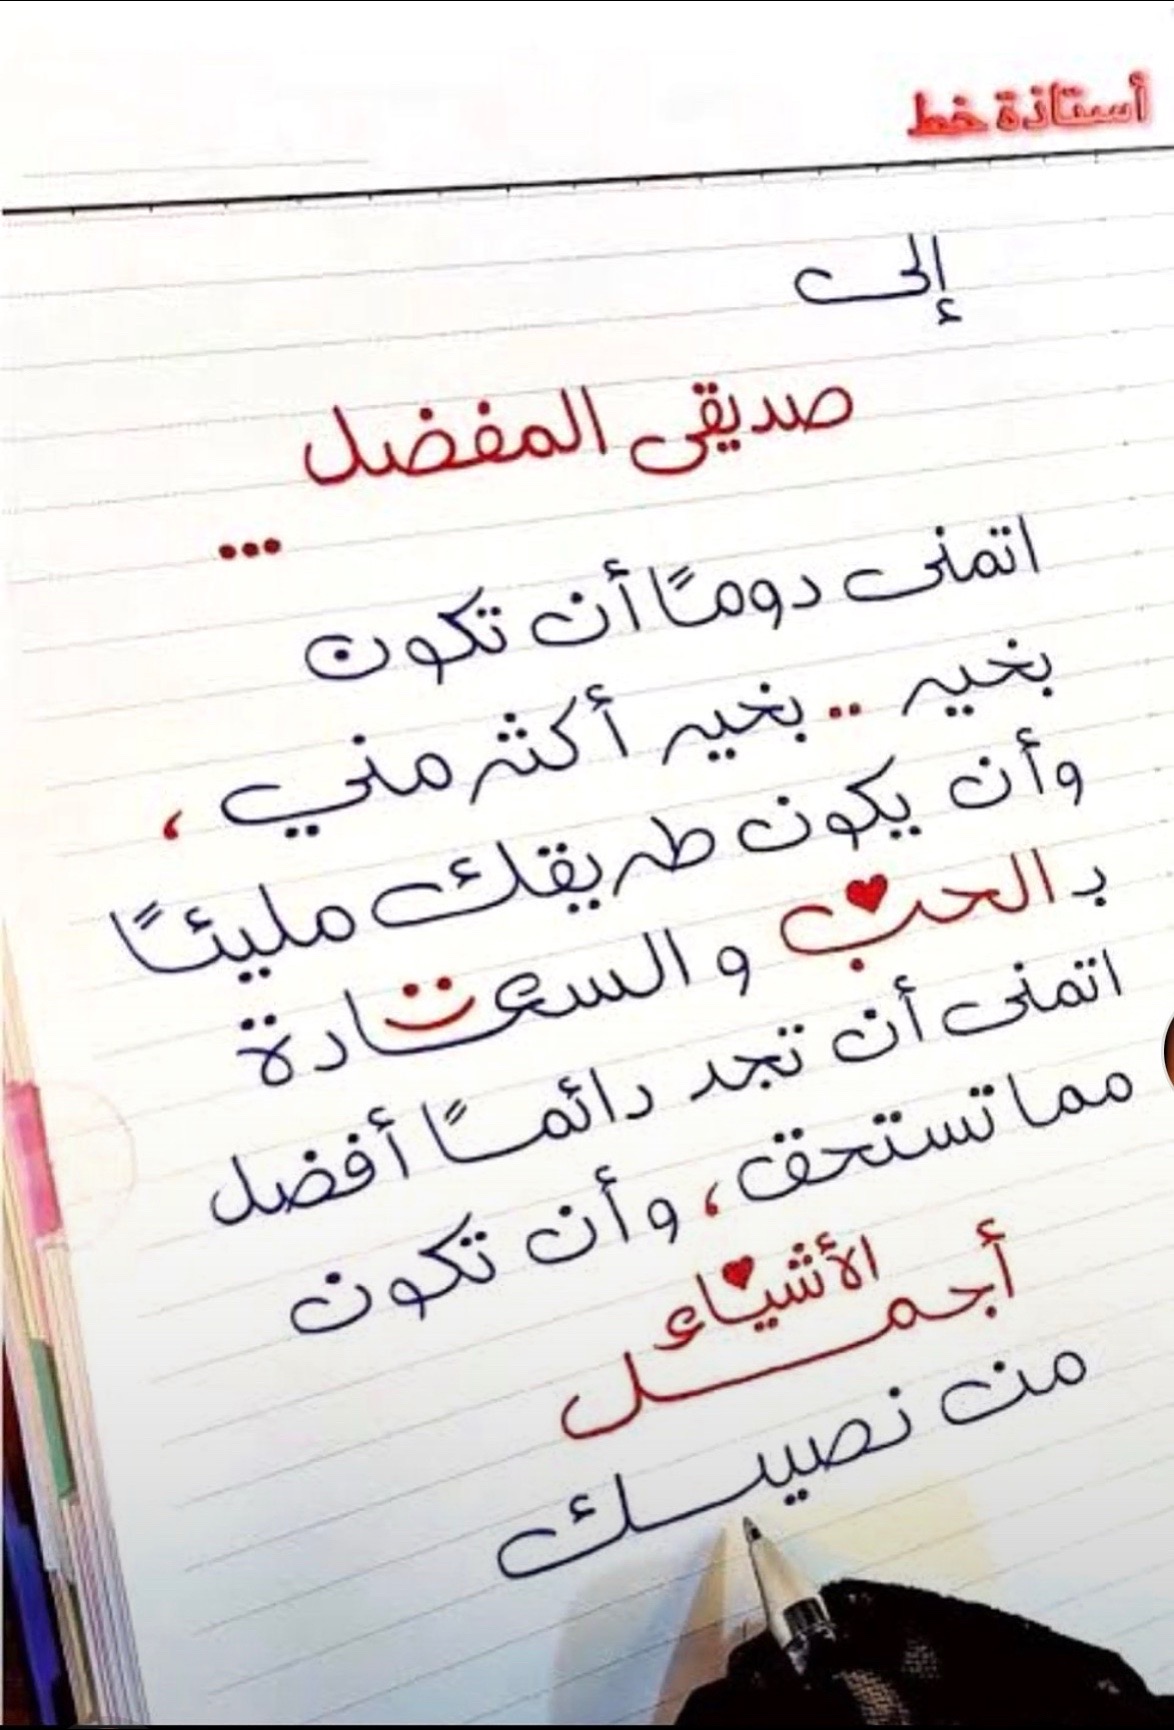 أستاذة خط
إلى
صديقى المفضل
...
اتمنى دومًا أن تكون
بخير .. بخير أكثر مني ،
وأن يكون طريقك مليئًا
بـ الحب و السعادة
اتمنى أن تجد دائمًا أفضل
مما تستحق ، وأن تكون
أجمل الأشياء
من نصيبك